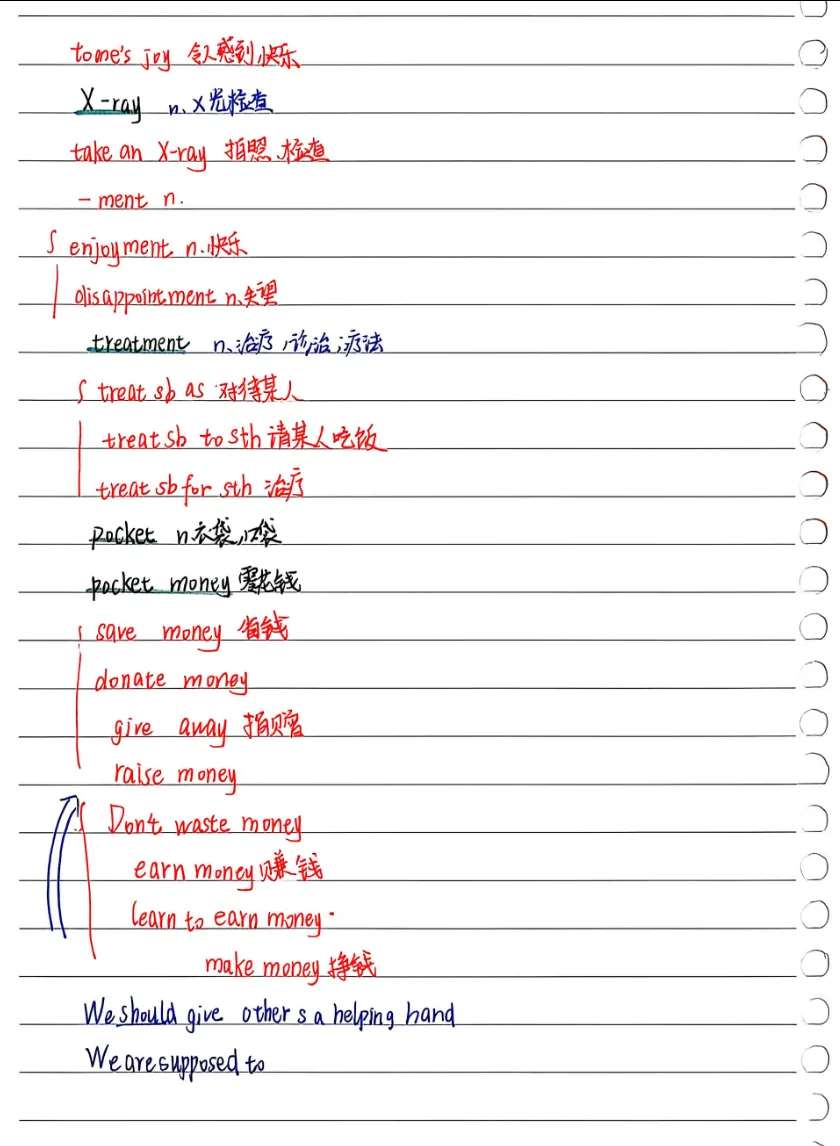 to me's joy 令人感到快乐
X-ray n. X光检查
take an X-ray 拍照、检查
-ment n.
enjoyment n.快乐
disappointment n.失望
treatment n.治疗;诊治;疗法
treat sb as 对待某人
treat sb to sth 请某人吃饭
treat sb for sth 治疗
pocket n衣袋,口袋
pocket money 零花钱
save money 省钱
donate money
give away 捐赠
raise money
Don't waste money
earn money 赚钱
learn to earn money.
make money 挣钱
We should give others a helping hand
We are supposed to